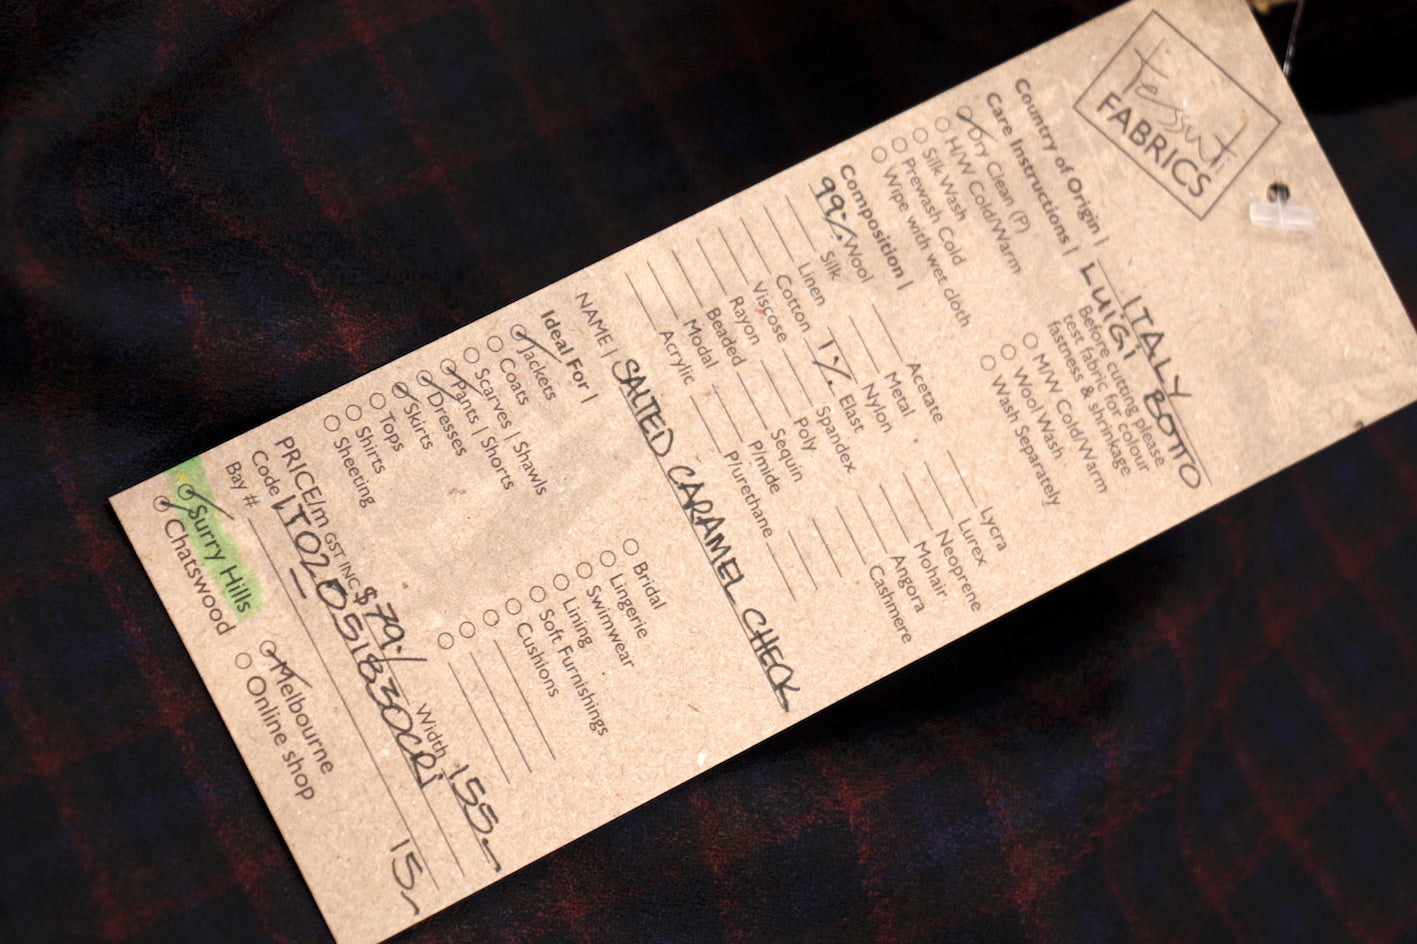 Tessuti
FABRICS
Country of Origin | ITALY
Care Instructions | LUIGI BOTTO
Dry Clean (P)
H/W Cold/Warm
Silk Wash
Prewash Cold
Wipe with wet cloth
Before cutting please
test fabric for colour
fastness & shrinkage
M/W Cold/Warm
Wool Wash
Wash Separately
Composition |
99% Wool
Silk
Linen
Cotton
Viscose
Rayon
Beaded
Modal
Acrylic
Acetate
Metal
Nylon
1% Elast
Spandex
Poly
Sequin
P/mide
P/urethane
Lycra
Lurex
Neoprene
Mohair
Angora
Cashmere
NAME | SALTED CARAMEL CHECK
Ideal For |
Jackets
Coats
Scarves | Shawls
Pants | Shorts
Dresses
Skirts
Tops
Shirts
Sheeting
Bridal
Lingerie
Swimwear
Lining
Soft Furnishings
Cushions
PRICE/m GST INC $79./ Width 155
Code
Bay # 15
Surry Hills
Chatswood
Melbourne
Online shop